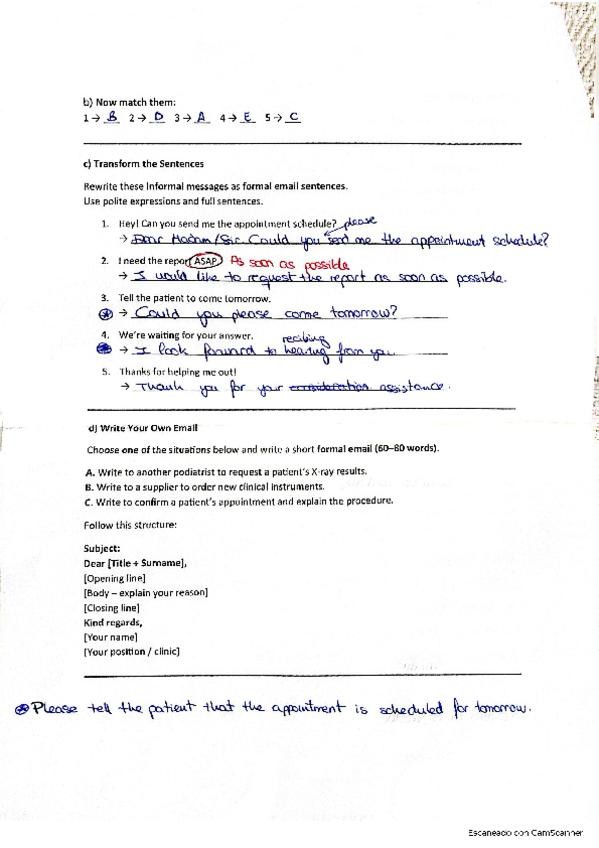 b) Now match them:
1 → B 2 → D 3 → A 4 → E 5 → C
c) Transform the Sentences
Rewrite these informal messages as formal email sentences.
Use polite expressions and full sentences.
1. Hey! Can you send me the appointment schedule? please
→ Dear Madam/Sir. Could you send me the appointment schedule?
2. I need the report ASAP. As soon as possible
→ I would like to request the report as soon as possible.
3. Tell the patient to come tomorrow.
→ Could you please come tomorrow?
4. We're waiting for your answer.
→ I look forward to hearing from you
5. Thanks for helping me out!
→ Thank you for your consideration assistance.
d) Write Your Own Email
Choose one of the situations below and write a short formal email (60–80 words).
A. Write to another podiatrist to request a patient's X-ray results.
B. Write to a supplier to order new clinical instruments.
C. Write to confirm a patient's appointment and explain the procedure.
Follow this structure:
Subject:
Dear [Title + Surname],
[Opening line]
[Body – explain your reason]
[Closing line]
Kind regards,
[Your name]
[Your position / clinic]
Please tell the patient that the appointment is scheduled for tomorrow.
Escaneado con CamScanner